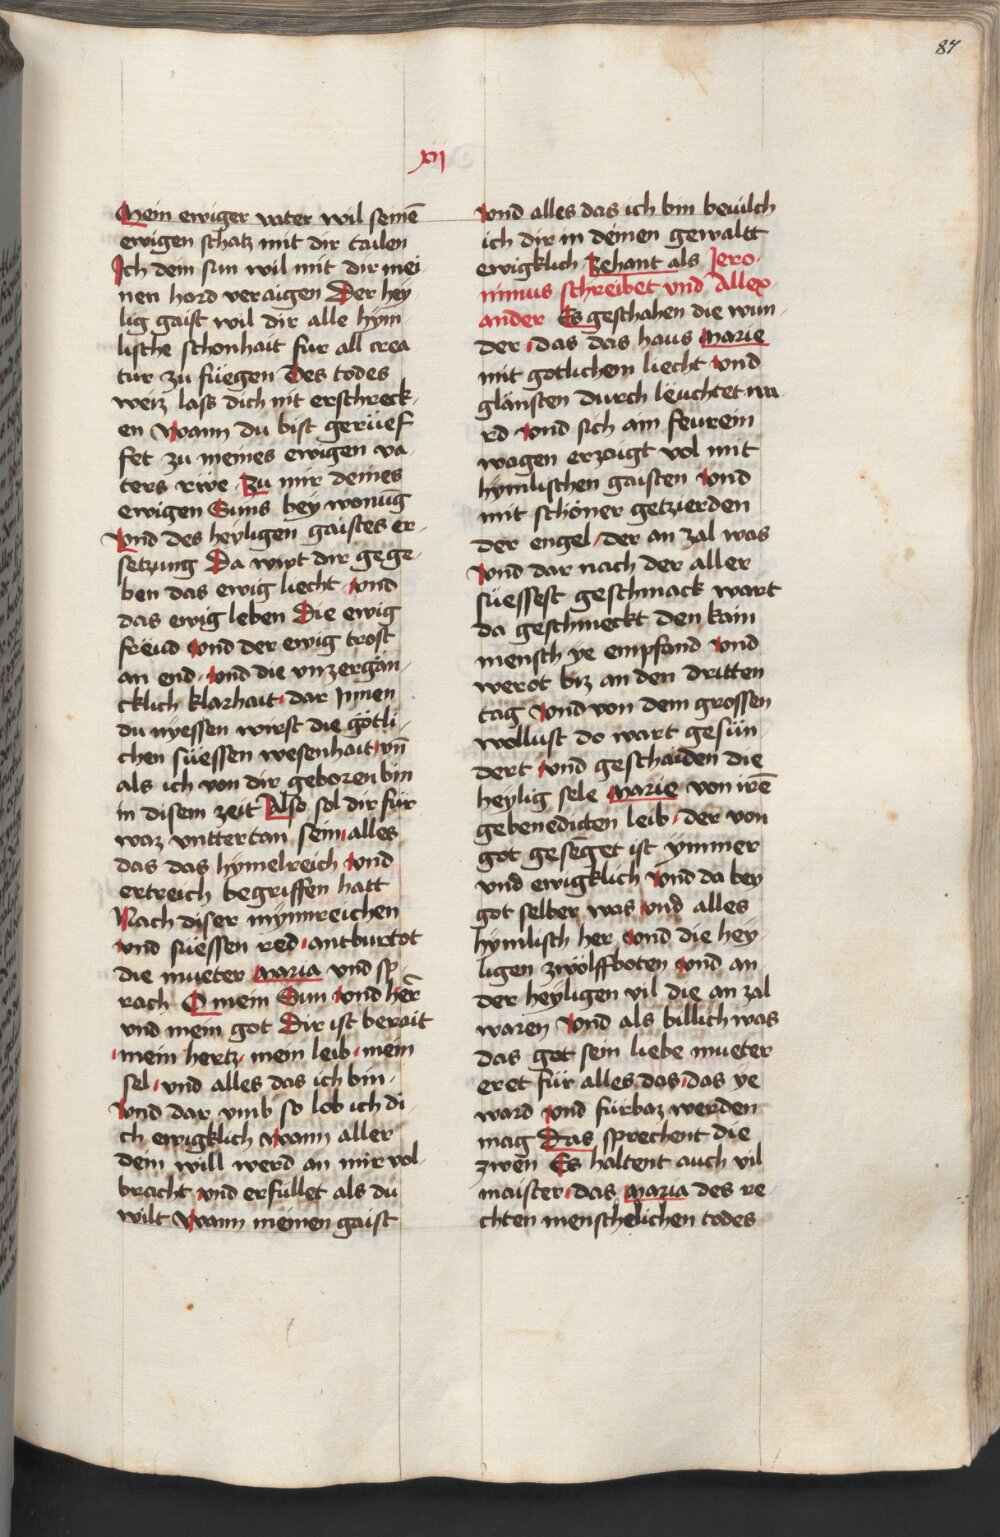 87
xij
Mein ewiger vater wil seinē
ewigen schatz mit dir tailen
Ich dein sun wil mit dir mei
nen hord veraigen Der hey
lig gaist wil dir alle hym
lische schonhait fur all crea
tur zu füegen Des todes
weiz lass dich nit erschreck
en Wann du bist gerüef
fet zu meines ewigen va
ters rwe Zu mir deines
ewigen Suns bey wonūg
Und des heyligen gaistes er
setzung Da wirt dir gege
ben das ewig liecht und
das ewig leben Die ewig
frëud und der ewig trost
an end und die vnzergän
cklich klarhait dar Jnnen
du nyessen wirst die götli
chen süessen wesenhait vn̄
als ich von dir geboren bin
in disem zeit Also sol dir für
waz vnttertan sein alles
das das hymelreich und
ertreich begriffen hatt
Nach diser mynnreichen
und süessen red antburtot
die mueter Maria vnd sp
rach O mein Sun und her̄
vnd mein got Dir ist berait
mein hertz mein leib mein
sel vnd alles das ich bin
Und dar vmb so lob ich di
ch ewigklich Wann aller
dein will werd an mir vol
bracht und erfüllet als du
wilt Wann meinen gaist
Und alles das ich bin beuilch
ich dir in deinen gewaltt
ewigklich Zehant als Jero
nimus schreibet vnd Allex
ander Es geschahen die wun
der das das haus Marie
mit gotlichem liecht und
glänsten durch leüchtet wa
rd Und sich ain feurein
wagen erzaigt vol mit
hymlischen gaisten und
mit schöner getzierden
der engel der an zal was
Und dar nach der aller
süessest geschmack wart
da geschmeckt den kain
mensch ye empfand und
werot biz an den dritten
tag Und von dem grossen
wollust do wart gesün
dert und geschaiden die
heylig sele Marie von irē
gebenedicten leib der von
got geseget ist ymmer
vnd ewigklich Und da bey
got selber was und alles
hymlisch her und die hey
ligen zwölffboten und an
der heyligen vil die an zal
waren Und als billich was
das got sein liebe mueter
eret für alles das das ye
ward und fürbaz werden
mag Das sprechent die
zwen Es haltent auch vil
maister das Maria des re
chten menschelichen todes